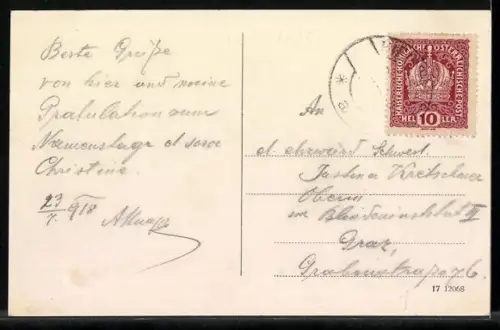 Beste Grüße
von hier und meine
Gratulation zum
Namenstage d soror
Christine.
23/7. 918
An
d ehrwürd Schwest.
Justina Kretschmer
Oberin
im Blindeninstitut II
Graz,
Grabenstraße 76.
KAISERLICHE KÖNIGLICHE ÖSTERREICHISCHE POST
HELLER 10
a
17 12068